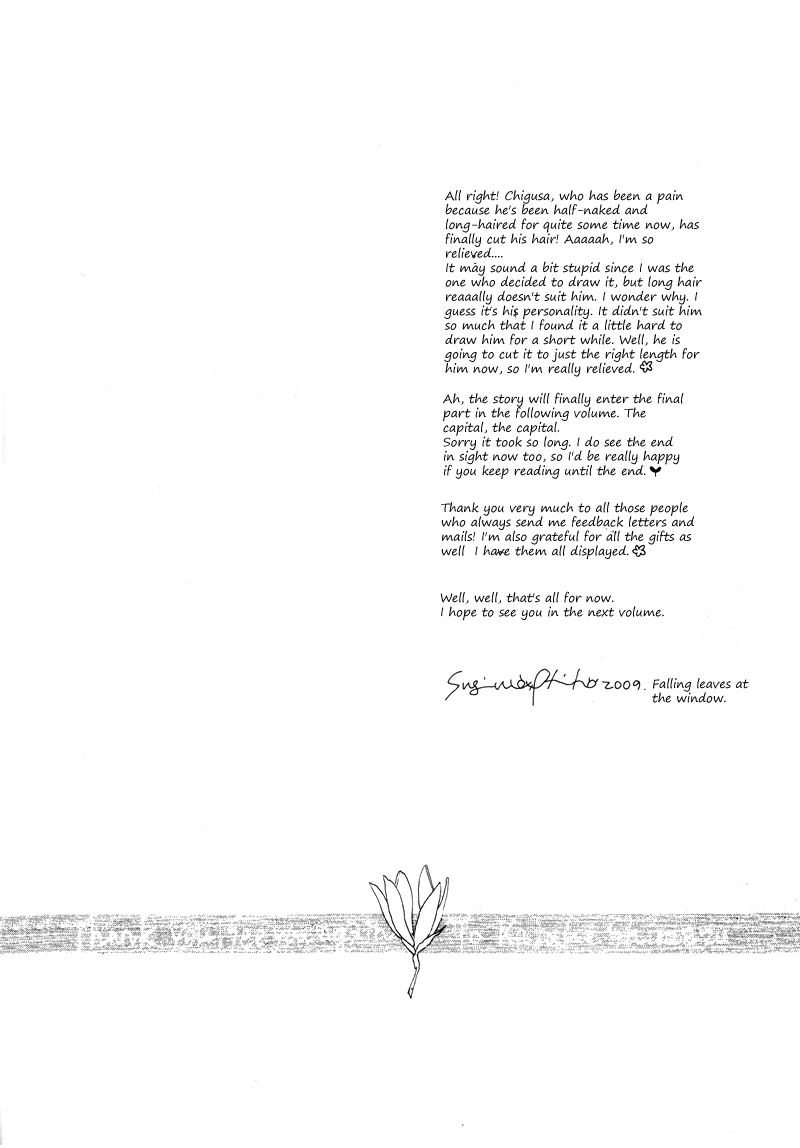 All right! Chigusa, who has been a pain
because he's been half-naked and
long-haired for quite some time now, has
finally cut his hair! Aaaaah, I'm so
relieved....
It may sound a bit stupid since I was the
one who decided to draw it, but long hair
reaaally doesn't suit him. I wonder why. I
guess it's his personality. It didn't suit him
so much that I found it a little hard to
draw him for a short while. Well, he is
going to cut it to just the right length for
him now, so I'm really relieved.
Ah, the story will finally enter the final
part in the following volume. The
capital, the capital.
Sorry it took so long. I do see the end
in sight now too, so I'd be really happy
if you keep reading until the end.
Thank you very much to all those people
who always send me feedback letters and
mails! I'm also grateful for all the gifts as
well I have them all displayed.
Well, well, that's all for now.
I hope to see you in the next volume.
2009. Falling leaves at
the window.
Thank you